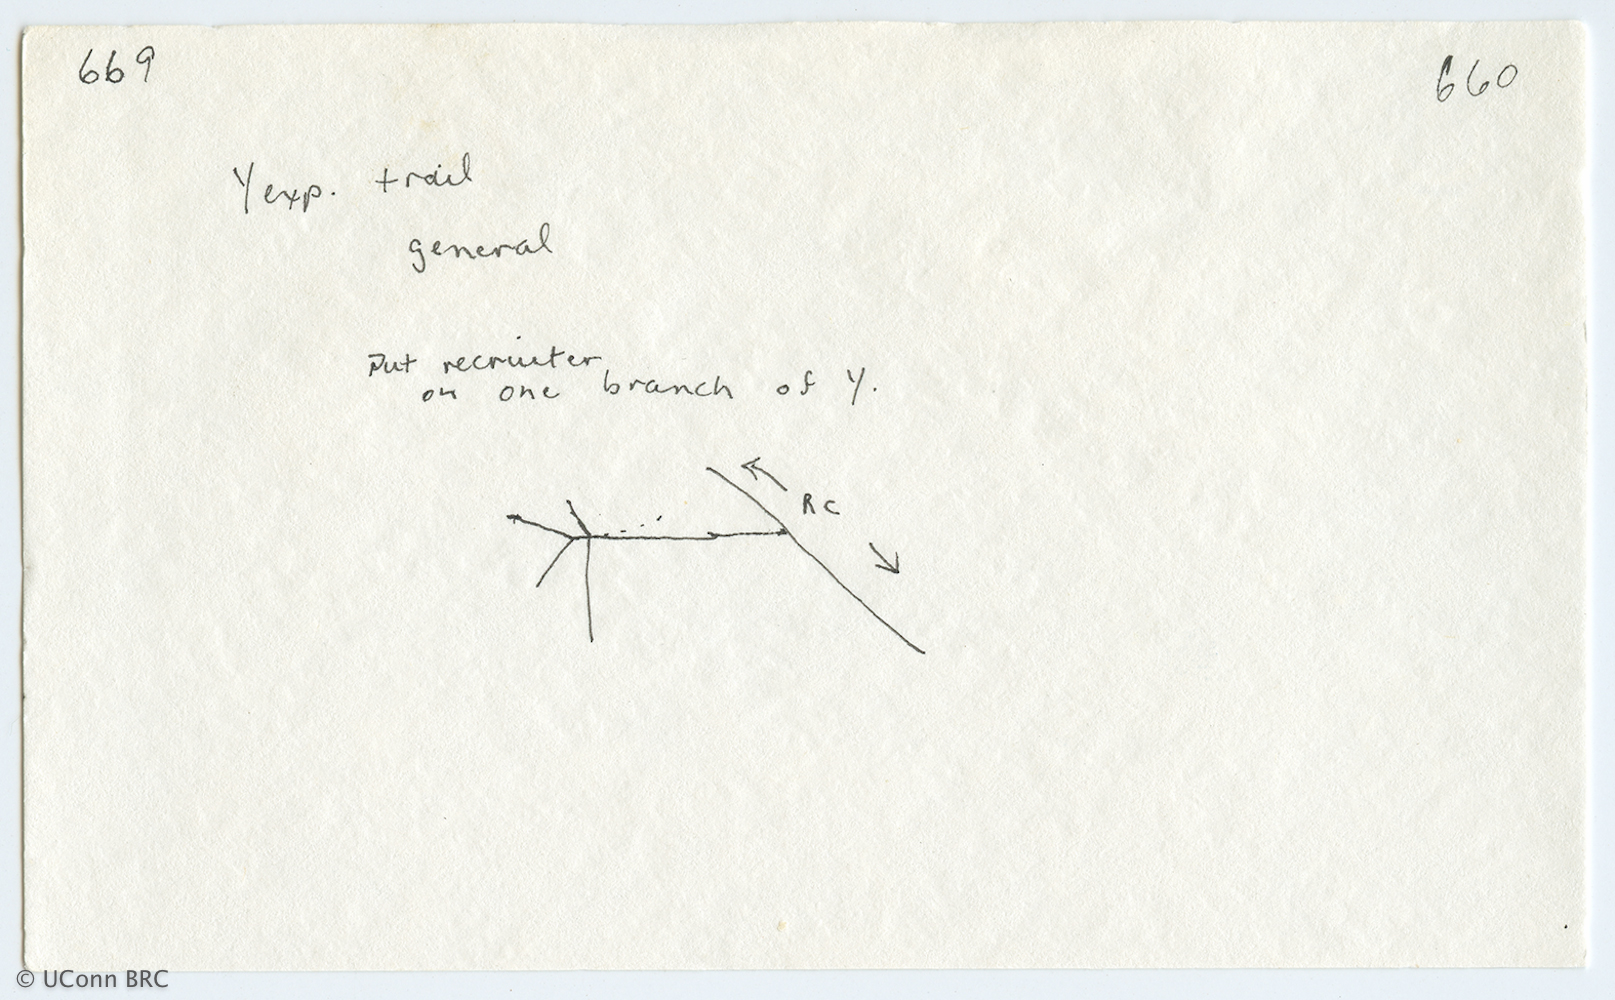 669
660
Y exp. trail
general
Put recruiter
on one branch of Y.
RC
© UConn BRC